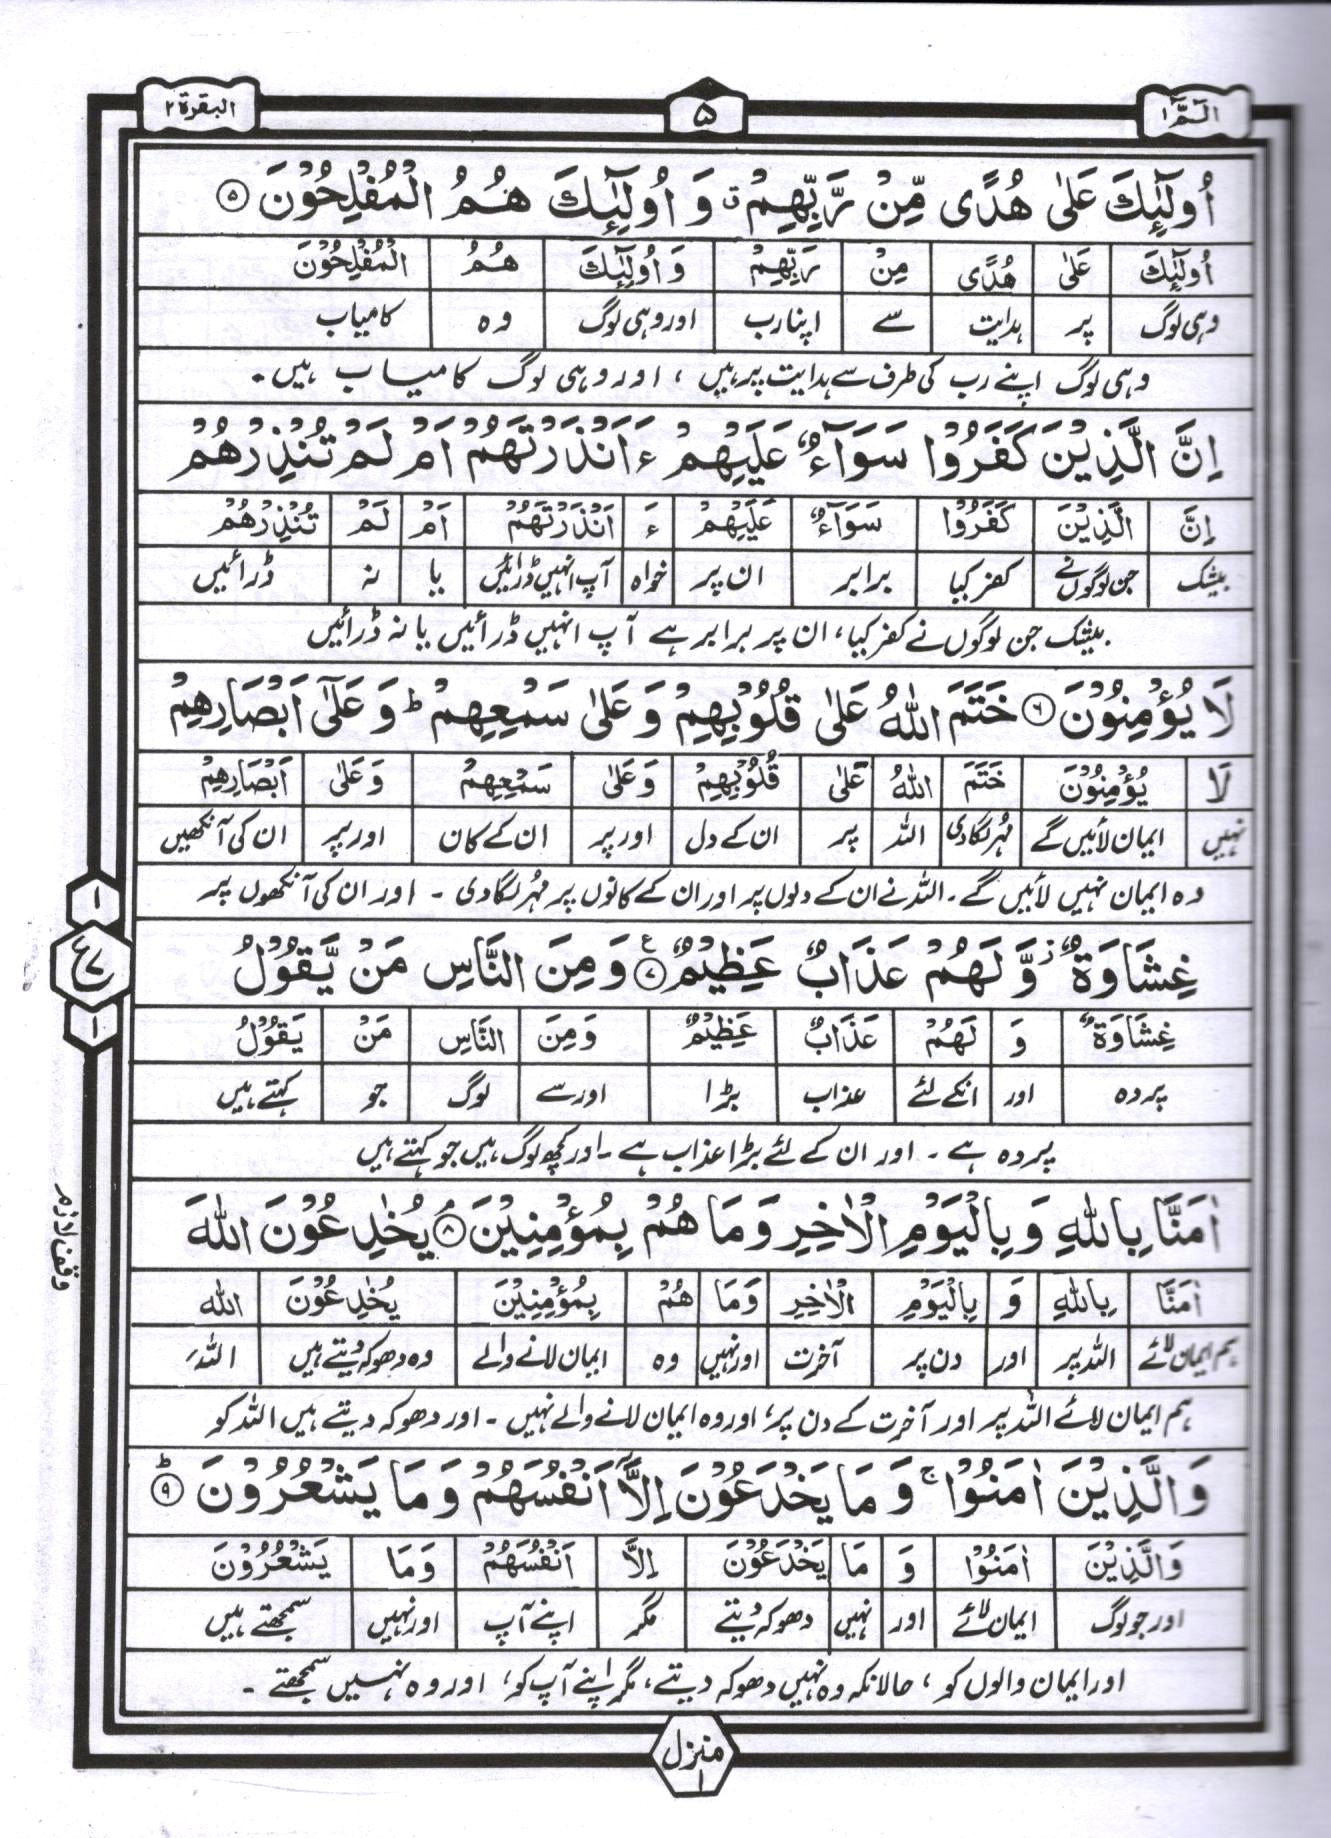 الٓمّٓ ۱
۵
البقرة ۲
اُولٰٓئِكَ عَلٰى هُدًى مِّنْ رَّبِّهِمْ ۗ وَ اُولٰٓئِكَ هُمُ الْمُفْلِحُوْنَ ۝۵
اُولٰٓئِكَ عَلٰى هُدًى مِنْ رَبِّهِمْ وَ اُولٰٓئِكَ هُمُ الْمُفْلِحُوْنَ
وہی لوگ پر ہدایت سے اپنا رب اور وہی لوگ وہ کامیاب
وہی لوگ اپنے رب کی طرف سے ہدایت پر ہیں ، اور وہی لوگ کامیاب ہیں۔
اِنَّ الَّذِيْنَ كَفَرُوْا سَوَآءٌ عَلَيْهِمْ ءَاَنْذَرْتَهُمْ اَمْ لَمْ تُنْذِرْهُمْ
اِنَّ الَّذِيْنَ كَفَرُوْا سَوَآءٌ عَلَيْهِمْ ءَ اَنْذَرْتَهُمْ اَمْ لَمْ تُنْذِرْهُمْ
بیشک جن لوگوں نے کفر کیا برابر ان پر خواہ آپ انہیں ڈرائیں یا نہ ڈرائیں
بیشک جن لوگوں نے کفر کیا، ان پر برابر ہے آپ انہیں ڈرائیں یا نہ ڈرائیں
لَا يُؤْمِنُوْنَ ۝۶ خَتَمَ اللّٰهُ عَلٰى قُلُوْبِهِمْ وَ عَلٰى سَمْعِهِمْ ؕ وَ عَلٰٓى اَبْصَارِهِمْ
لَا يُؤْمِنُوْنَ خَتَمَ اللّٰهُ عَلٰى قُلُوْبِهِمْ وَ عَلٰى سَمْعِهِمْ وَ عَلٰى اَبْصَارِهِمْ
نہیں ایمان لائیں گے مہر لگادی اللہ پر ان کے دل اور پر ان کے کان اور پر ان کی آنکھیں
وہ ایمان نہیں لائیں گے۔ اللہ نے ان کے دلوں پر اور ان کے کانوں پر مہر لگادی ۔ اور ان کی آنکھوں پر
غِشَاوَةٌ ز وَّ لَهُمْ عَذَابٌ عَظِيْمٌ ۝۷ ع وَ مِنَ النَّاسِ مَنْ يَّقُوْلُ
غِشَاوَةٌ وَ لَهُمْ عَذَابٌ عَظِيْمٌ وَ مِنَ النَّاسِ مَنْ يَقُوْلُ
پردہ اور انکے لئے عذاب بڑا اور سے لوگ جو کہتے ہیں
پردہ ہے ۔ اور ان کے لئے بڑا عذاب ہے ۔ اور کچھ لوگ ہیں جو کہتے ہیں
۱
ع ۷
۱
اٰمَنَّا بِاللّٰهِ وَ بِالْيَوْمِ الْاٰخِرِ وَ مَا هُمْ بِمُؤْمِنِيْنَ ۝۸ۘ يُخٰدِعُوْنَ اللّٰهَ
اٰمَنَّا بِاللّٰهِ وَ بِالْيَوْمِ الْاٰخِرِ وَ مَا هُمْ بِمُؤْمِنِيْنَ يُخٰدِعُوْنَ اللّٰهَ
ہم ایمان لائے اللہ پر اور دن پر آخرت اور نہیں وہ ایمان لانے والے وہ دھوکہ دیتے ہیں اللہ
ہم ایمان لائے اللہ پر اور آخرت کے دن پر، اور وہ ایمان لانے والے نہیں ۔ اور دھوکہ دیتے ہیں اللہ کو
وقف لازم
وَ الَّذِيْنَ اٰمَنُوْا ۚ وَ مَا يَخْدَعُوْنَ اِلَّآ اَنْفُسَهُمْ وَ مَا يَشْعُرُوْنَ ؕ ۝۹
وَ الَّذِيْنَ اٰمَنُوْا وَ مَا يَخْدَعُوْنَ اِلَّا اَنْفُسَهُمْ وَ مَا يَشْعُرُوْنَ
اور جو لوگ ایمان لائے اور نہیں دھوکہ دیتے مگر اپنے آپ اور نہیں سمجھتے ہیں
اور ایمان والوں کو ، حالانکہ وہ نہیں دھوکہ دیتے، مگر اپنے آپ کو، اور وہ نہیں سمجھتے ۔
منزل ۱